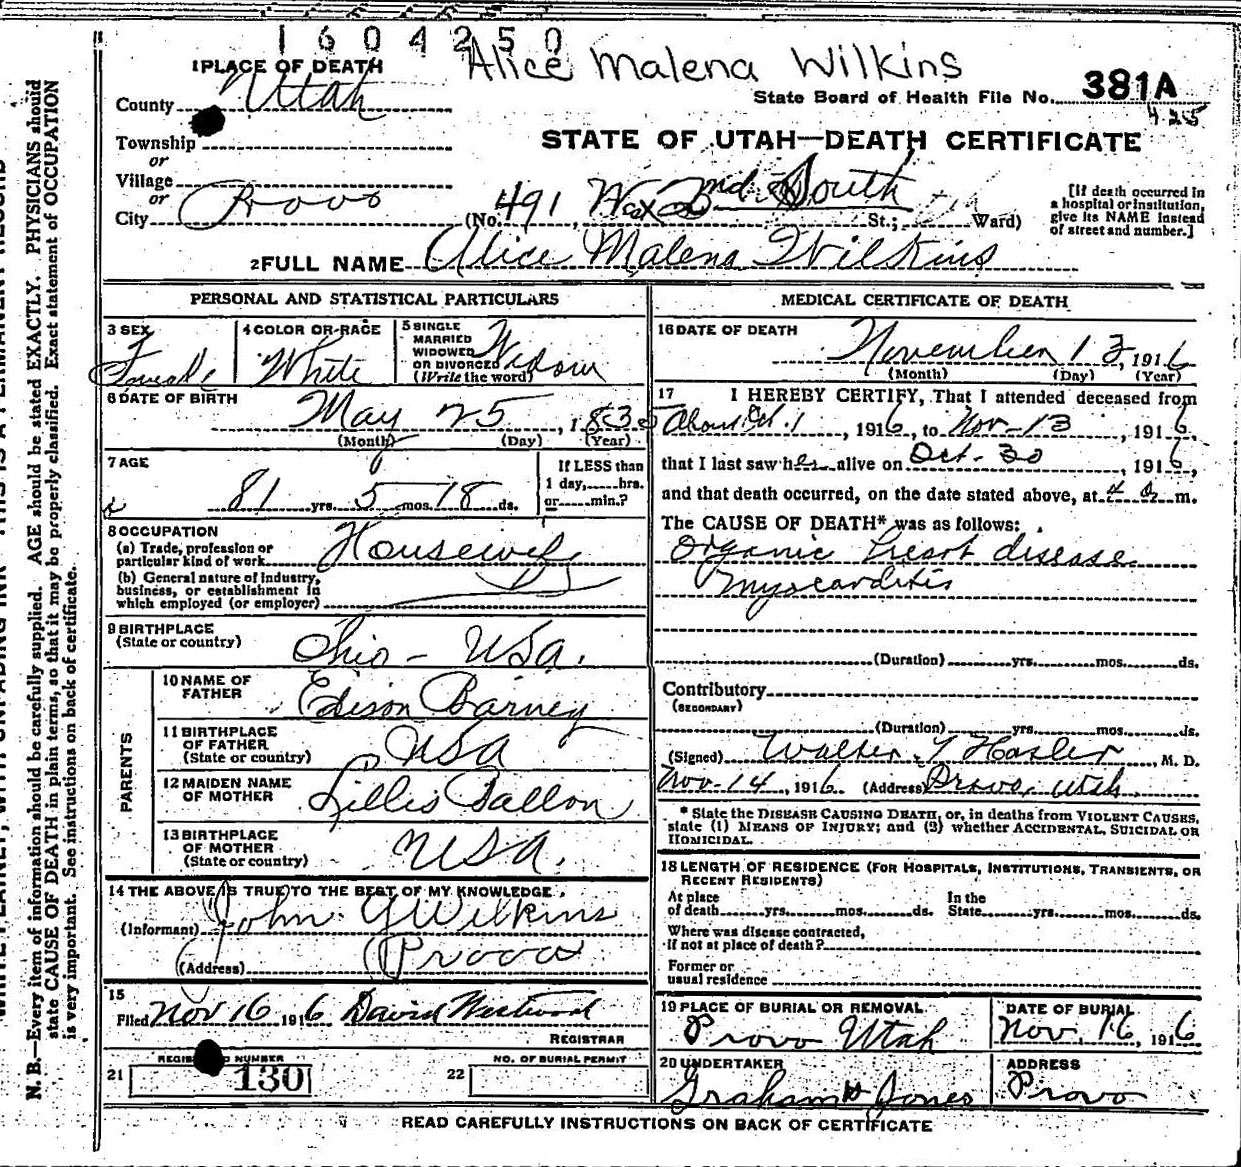 1604250
Alice Malena Wilkins
1 PLACE OF DEATH
County Utah
State Board of Health File No. 381A
425
Township
or
Village
or
City Provo
STATE OF UTAH—DEATH CERTIFICATE
(No. 491 West 2nd South St.; Ward)
[If death occurred in a hospital or institution, give its NAME instead of street and number.]
2 FULL NAME Alice Malena Wilkins
PERSONAL AND STATISTICAL PARTICULARS
3 SEX Female
4 COLOR OR RACE White
5 SINGLE MARRIED WIDOWED OR DIVORCED (Write the word) Widow
6 DATE OF BIRTH
May 25, 1835
(Month) (Day) (Year)
7 AGE
81 yrs. 5 mos. 18 ds.
If LESS than 1 day, hrs. or min.?
8 OCCUPATION
(a) Trade, profession or particular kind of work Housewife
(b) General nature of Industry, business, or establishment in which employed (or employer)
9 BIRTHPLACE (State or country) Ohio - USA.
PARENTS
10 NAME OF FATHER Edison Barney
11 BIRTHPLACE OF FATHER (State or country) USA
12 MAIDEN NAME OF MOTHER Lillis Ballou
13 BIRTHPLACE OF MOTHER (State or country) USA.
14 THE ABOVE IS TRUE TO THE BEST OF MY KNOWLEDGE
(Informant) John G Wilkins
(Address) Provo
15
Filed Nov 16 1916 David Westwood
REGISTRAR
REGISTERED NUMBER
21 130
NO. OF BURIAL PERMIT
22
MEDICAL CERTIFICATE OF DEATH
16 DATE OF DEATH
November 13, 1916
(Month) (Day) (Year)
17 I HEREBY CERTIFY, That I attended deceased from
About Oct. 1, 1916, to Nov-13, 1916,
that I last saw her alive on Oct. 30, 1916,
and that death occurred, on the date stated above, at 4 a m.
The CAUSE OF DEATH* was as follows:
Organic heart disease
Myocarditis
(Duration) yrs. mos. ds.
Contributory
(SECONDARY)
(Duration) yrs. mos. ds.
(Signed) Walter T Hasler, M. D.
Nov-14, 1916 (Address) Provo, Utah.
* State the DISEASE CAUSING DEATH, or, in deaths from VIOLENT CAUSES, state (1) MEANS OF INJURY; and (2) whether ACCIDENTAL, SUICIDAL OR HOMICIDAL.
18 LENGTH OF RESIDENCE (FOR HOSPITALS, INSTITUTIONS, TRANSIENTS, OR RECENT RESIDENTS)
At place of death yrs. mos. ds. In the State yrs. mos. ds.
Where was disease contracted, if not at place of death?
Former or usual residence
19 PLACE OF BURIAL OR REMOVAL Provo Utah
DATE OF BURIAL Nov, 16, 1916
20 UNDERTAKER Graham & Jones
ADDRESS Provo
READ CAREFULLY INSTRUCTIONS ON BACK OF CERTIFICATE
N. B.—Every item of information should be carefully supplied. AGE should be stated EXACTLY. PHYSICIANS should
state CAUSE OF DEATH in plain terms, so that it may be properly classified. Exact statement of OCCUPATION
is very important. See instructions on back of certificate.